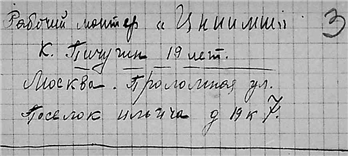 Рабочий монтер „Цниимш" 3
К. Пичугин 19 лет.
Москва. Проломная ул.
Поселок ильича д 19 к 7.